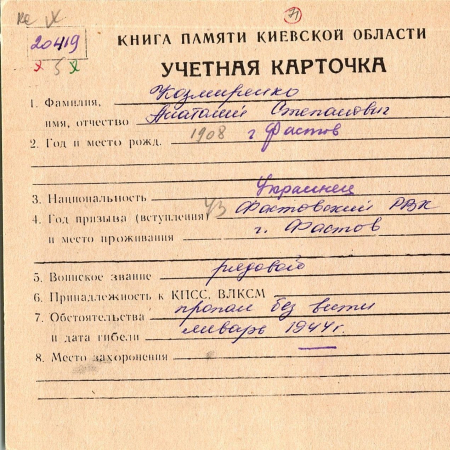 20419
КНИГА ПАМЯТИ КИЕВСКОЙ ОБЛАСТИ
УЧЕТНАЯ КАРТОЧКА
1. Фамилия, Казмиренко
имя, отчество Анатолий Степанович
2. Год и место рожд. 1908 г Фастов
3. Национальность Украинец
4. Год призыва (вступления) Фастовский РВК
и место проживания г. Фастов
5. Воинское звание рядовой
6. Принадлежность к КПСС, ВЛКСМ
7. Обстоятельства пропал без вести
и дата гибели январь 1944 г.
8. Место захоронения